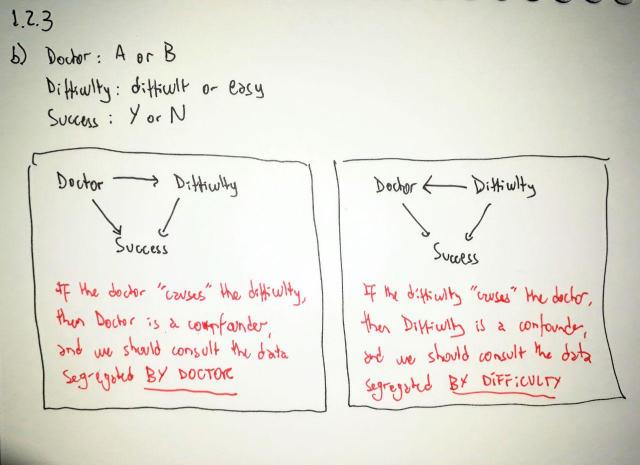 1.2.3
b) Doctor: A or B
Difficulty: difficult or easy
Success: Y or N
Doctor → Difficulty
Success
If the doctor "causes" the difficulty,
then Doctor is a counfounder,
and we should consult the data
segregated BY DOCTOR
Doctor ← Difficulty
Success
If the difficulty "causes" the doctor,
then Difficulty is a confounder,
and we should consult the data
segregated BY DIFFICULTY